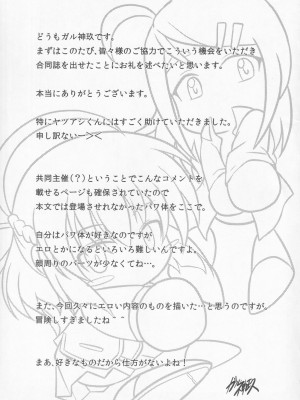 どうもガル神玖です。
まずはこのたび、皆々様のご協力でこういう機会をいただき
合同誌を出せたことにお礼を述べたいと思います。
本当にありがとうございます。
特にヤツアシくんにはすごく助けていただきました。
申し訳ないー＞＜
共同主催（？）ということでこんなコメントを
載せるページも確保されていたので
本文では登場させれなかったパワ体をここで。
自分はパワ体が好きなのですが
エロとかになるといろいろ難しいんですよ。
顔周りのパーツが少なくてね…。
また、今回久々にエロい内容のものを描いた…と思うのですが、
冒険しすぎましたね＾＾
まあ、好きなものだから仕方がないよね！